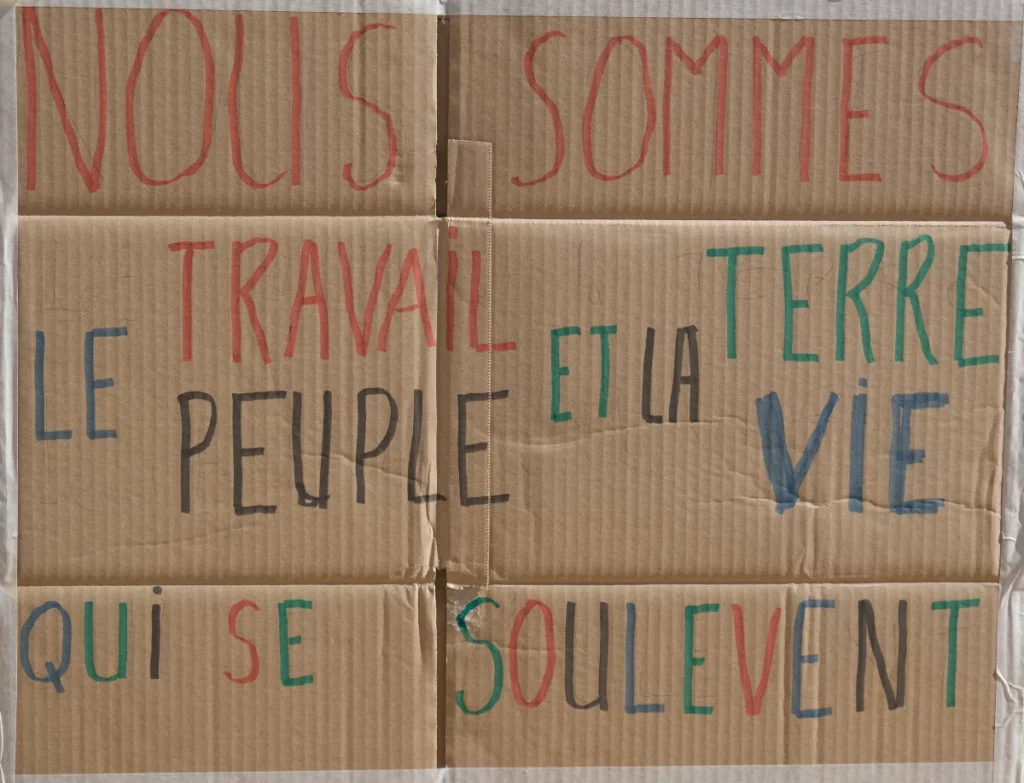 NOUS SOMMES
TRAVAiL TERRE
LE ET LA
PEUPLE ViE
QUi SE SOULEVENT